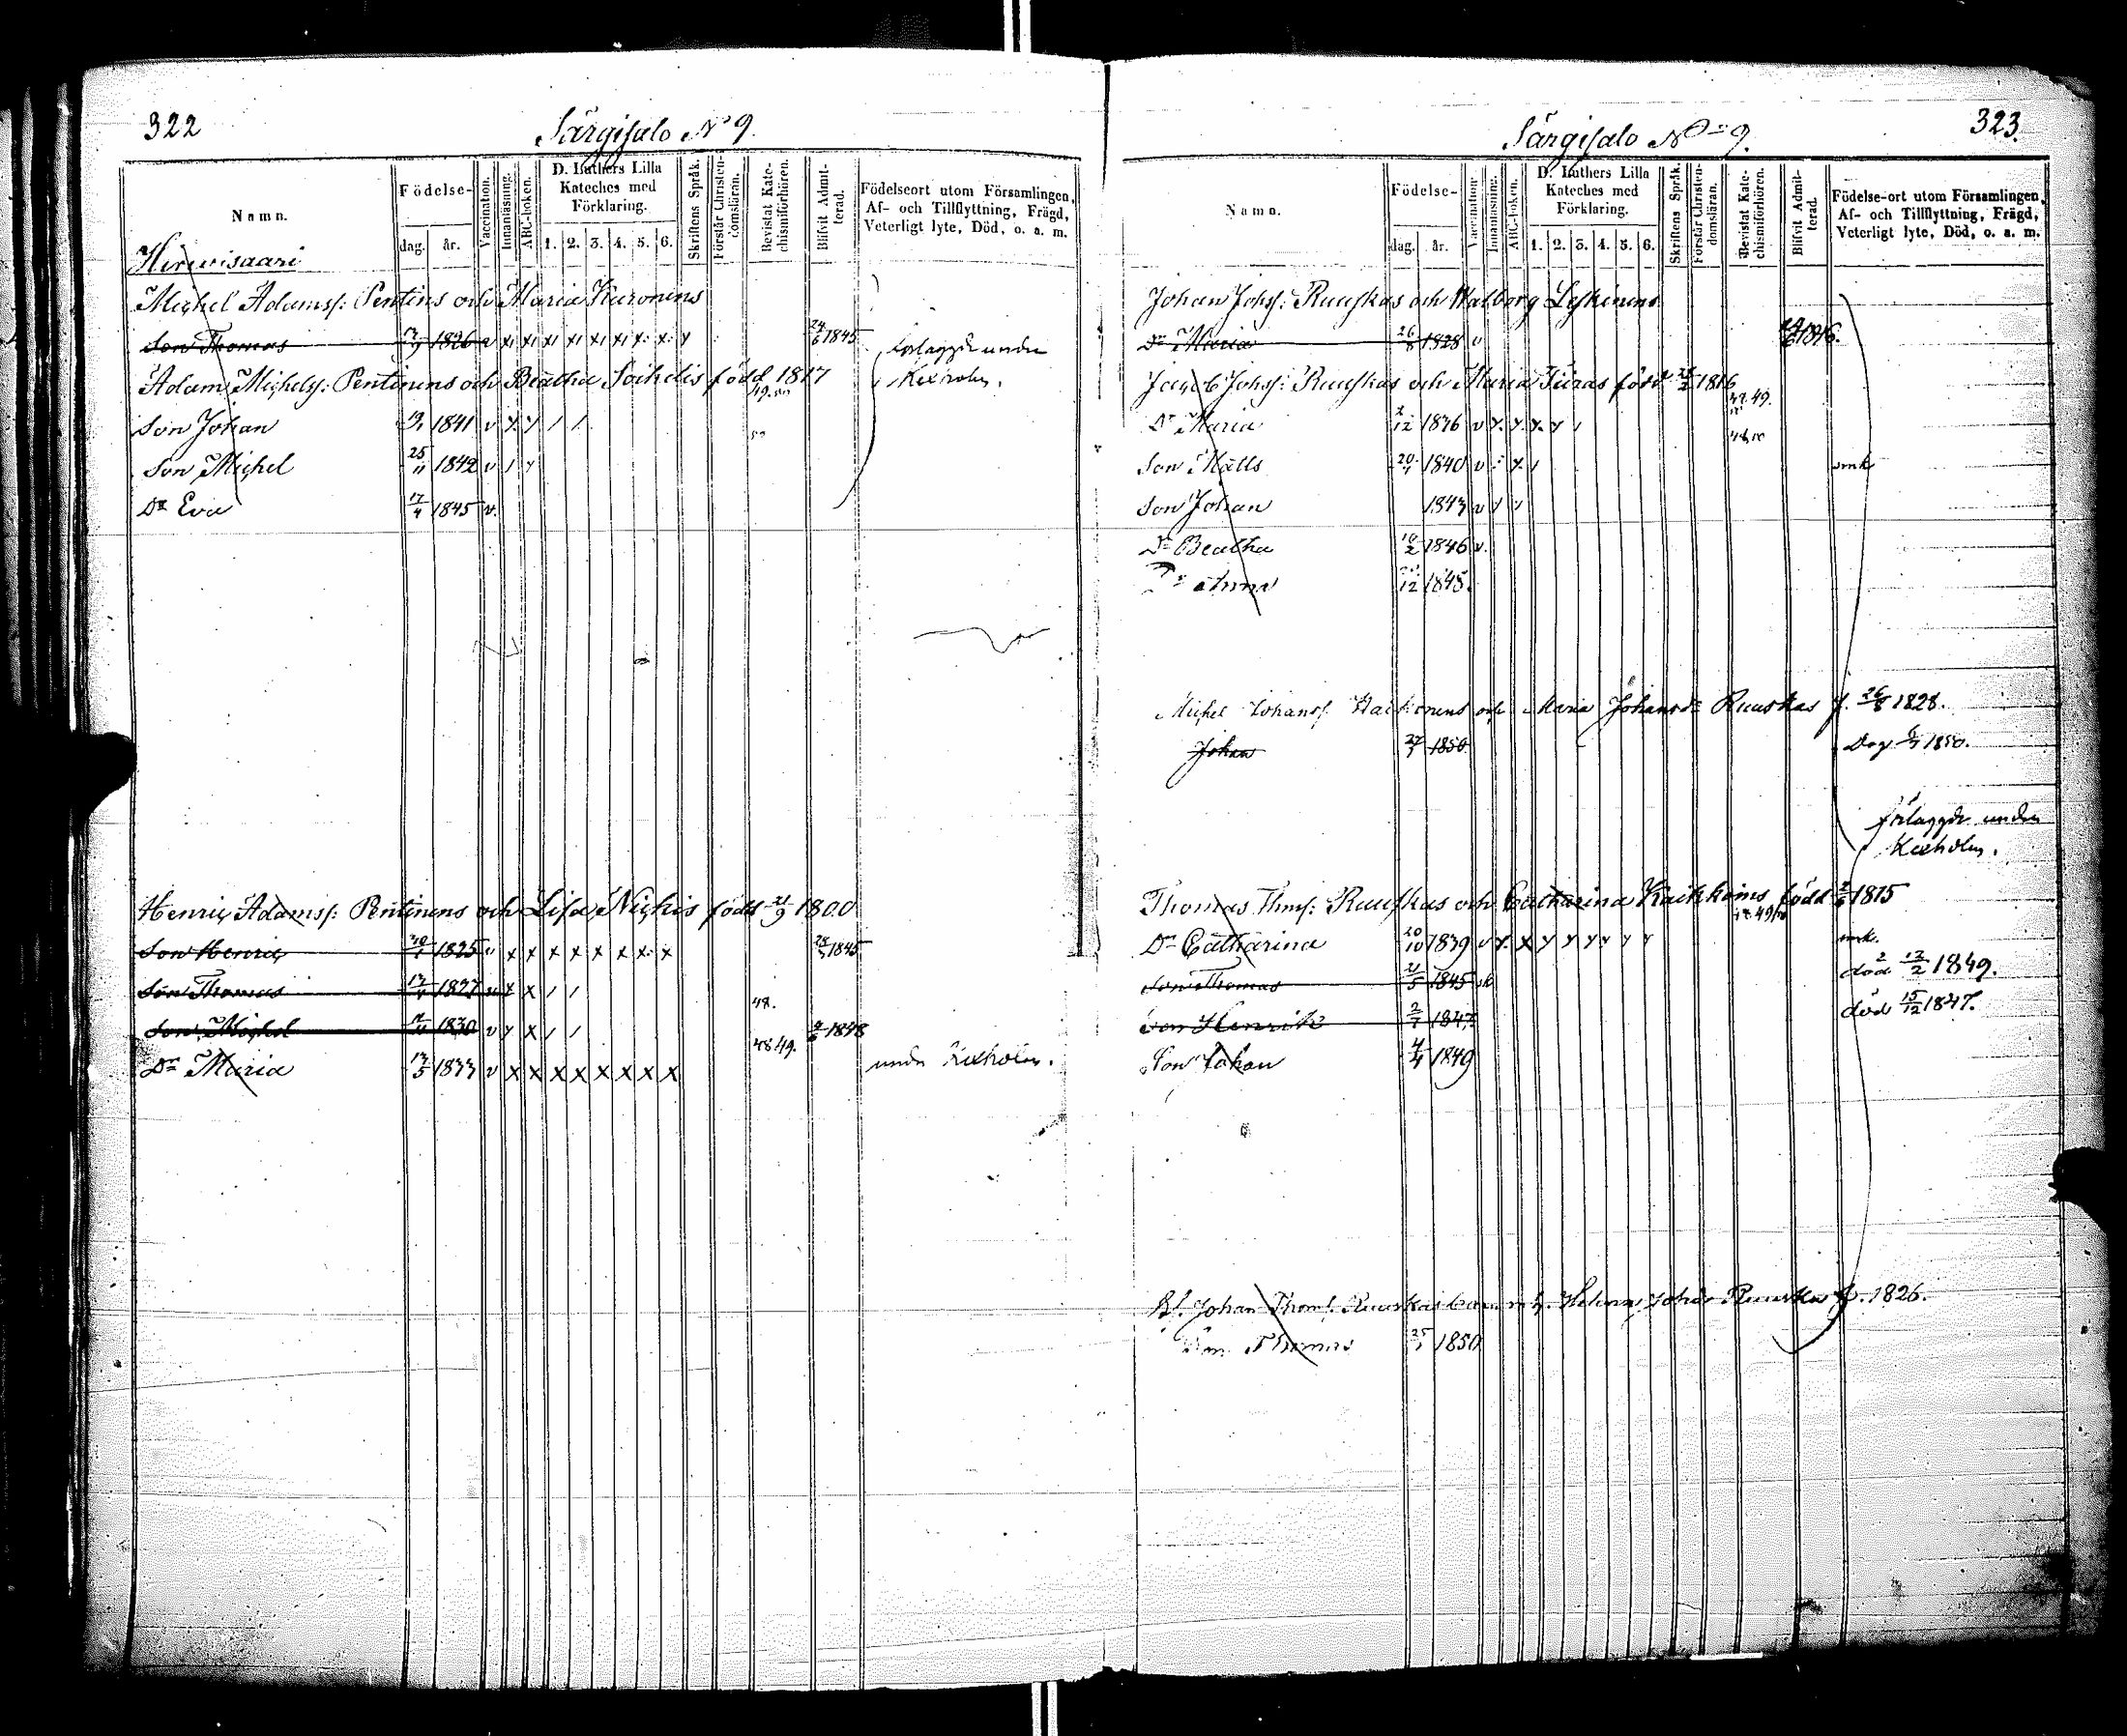 322
Särgisalo No 9.
Namn.
Födelse-
dag.
år.
Vaccination.
Innanläsning.
ABC-boken.
D. Luthers Lilla Kateches med Förklaring.
1. 2. 3. 4. 5. 6.
Skriftens Språk.
Förstår Christendomsläran.
Bevistat Katechismiförhören.
Blifvit Admitterad.
Födelseort utom Församlingen, Af- och Tillflyttning, Frägd, Veterligt lyte, Död, o. a. m.
Hirwisaari
Michel Adamss: Pentins och Maria Kuronens
Son Thomas 1826 v 24/6 1845
Förlaggde under
Kexholm.
Adam Michelss: Pentinens och Beatha Soikelis född 1817
Son Johan 1841 v
Son Michel 25/11 1842 v
Dr Eva 17/4 1845 v.
Henric Adamss: Pentinens och Lisa Nickis född 21/9 1800
Son Henric 1825 v x x x x x x x 1845
Son Thomas 1827 x x / /
48.
Son Michel 1830 v x x / / 1848
48 49.
Dr Maria 13/5 1833 v x x x x x x x x under Kexholm.
323.
Särgisalo No 9.
Namn.
Födelse-
dag.
år.
Vaccination.
Innanläsning.
ABC-boken.
D. Luthers Lilla Kateches med Förklaring.
1. 2. 3. 4. 5. 6.
Skriftens Språk.
Förstår Christendomsläran.
Bevistat Katechismiförhören.
Blifvit Admitterad.
Födelse-ort utom Församlingen, Af- och Tillflyttning, Frägd, Veterligt lyte, Död, o. a. m.
Johan Johss: Ruuskas och Walborg Leskinens
Dr Maria 26/8 1828 v 1846.
Jacob Johss: Ruuskas och Maria född 1816
49.
Dr Maria 2/12 1836 v
Son Matts 1840 v
Son Johan 1843 v
Dr Beatha 10/2 1846 v.
Dr Anna 1848.
Michel Johanss. och Maria Johansdr Ruuskas f. 26/8 1828.
Johan 1850 1850.
Förlaggde under
Kexholm.
Thomas Thoms: Ruuskas och Catharina född 1815
Dr Catharina 20/10 1839 v
Son Thomas 21/5 1845 död 12/2 1849.
Son Henrik 2/7 1847 död 15/12 1847.
Son Johan 4/4 1849
Johan Thoms. Ruuskas Helena Johsdr Ruuskas f. 1826.
Son Thomas 1850